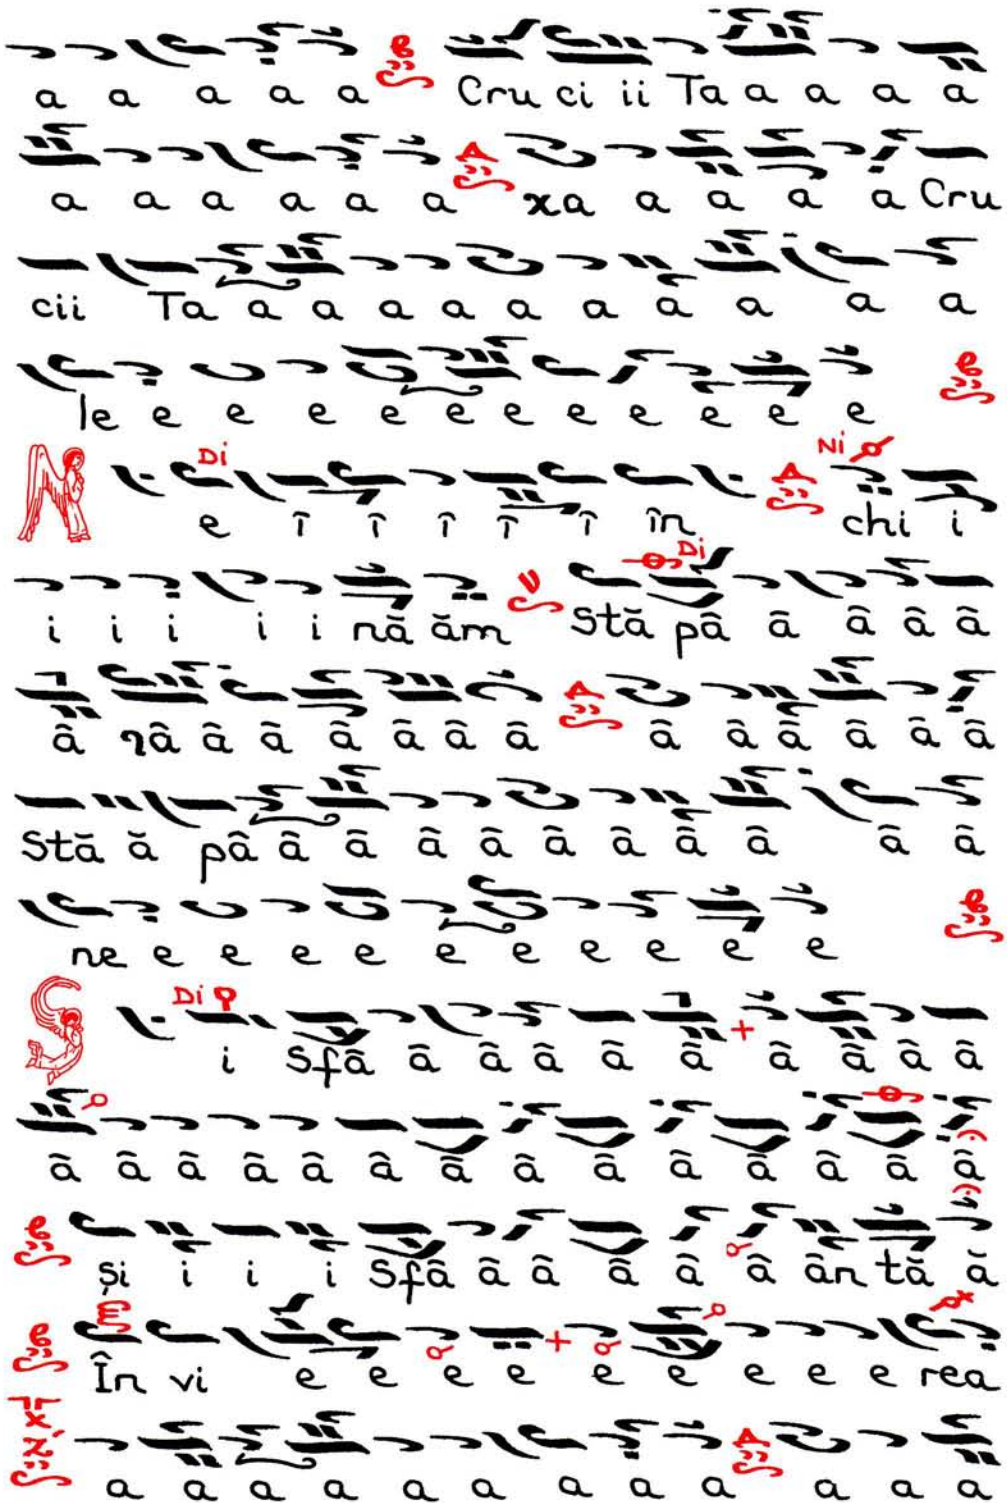 a a a a a Cru ci ii Ta a a a a
a a a a a a xa a a a a Cru
cii Ta a a a a a a a a a a
le e e e e e e e e e e e
Di Ni
N e î î î î î în chi i
Di
i i i i i nă ăm Stă pâ â â â â
â râ â â â â â â â â â â â â
Stă ă pâ â â â â â â â â â â
ne e e e e e e e e e e
Di
S i Sfâ â â â â â â â â â
â â â â â â â â â â â â â
și i i i Sfâ â â â â â ân tă ă
În vi e e e e e e e e e rea
a a a a a a a a a a a a